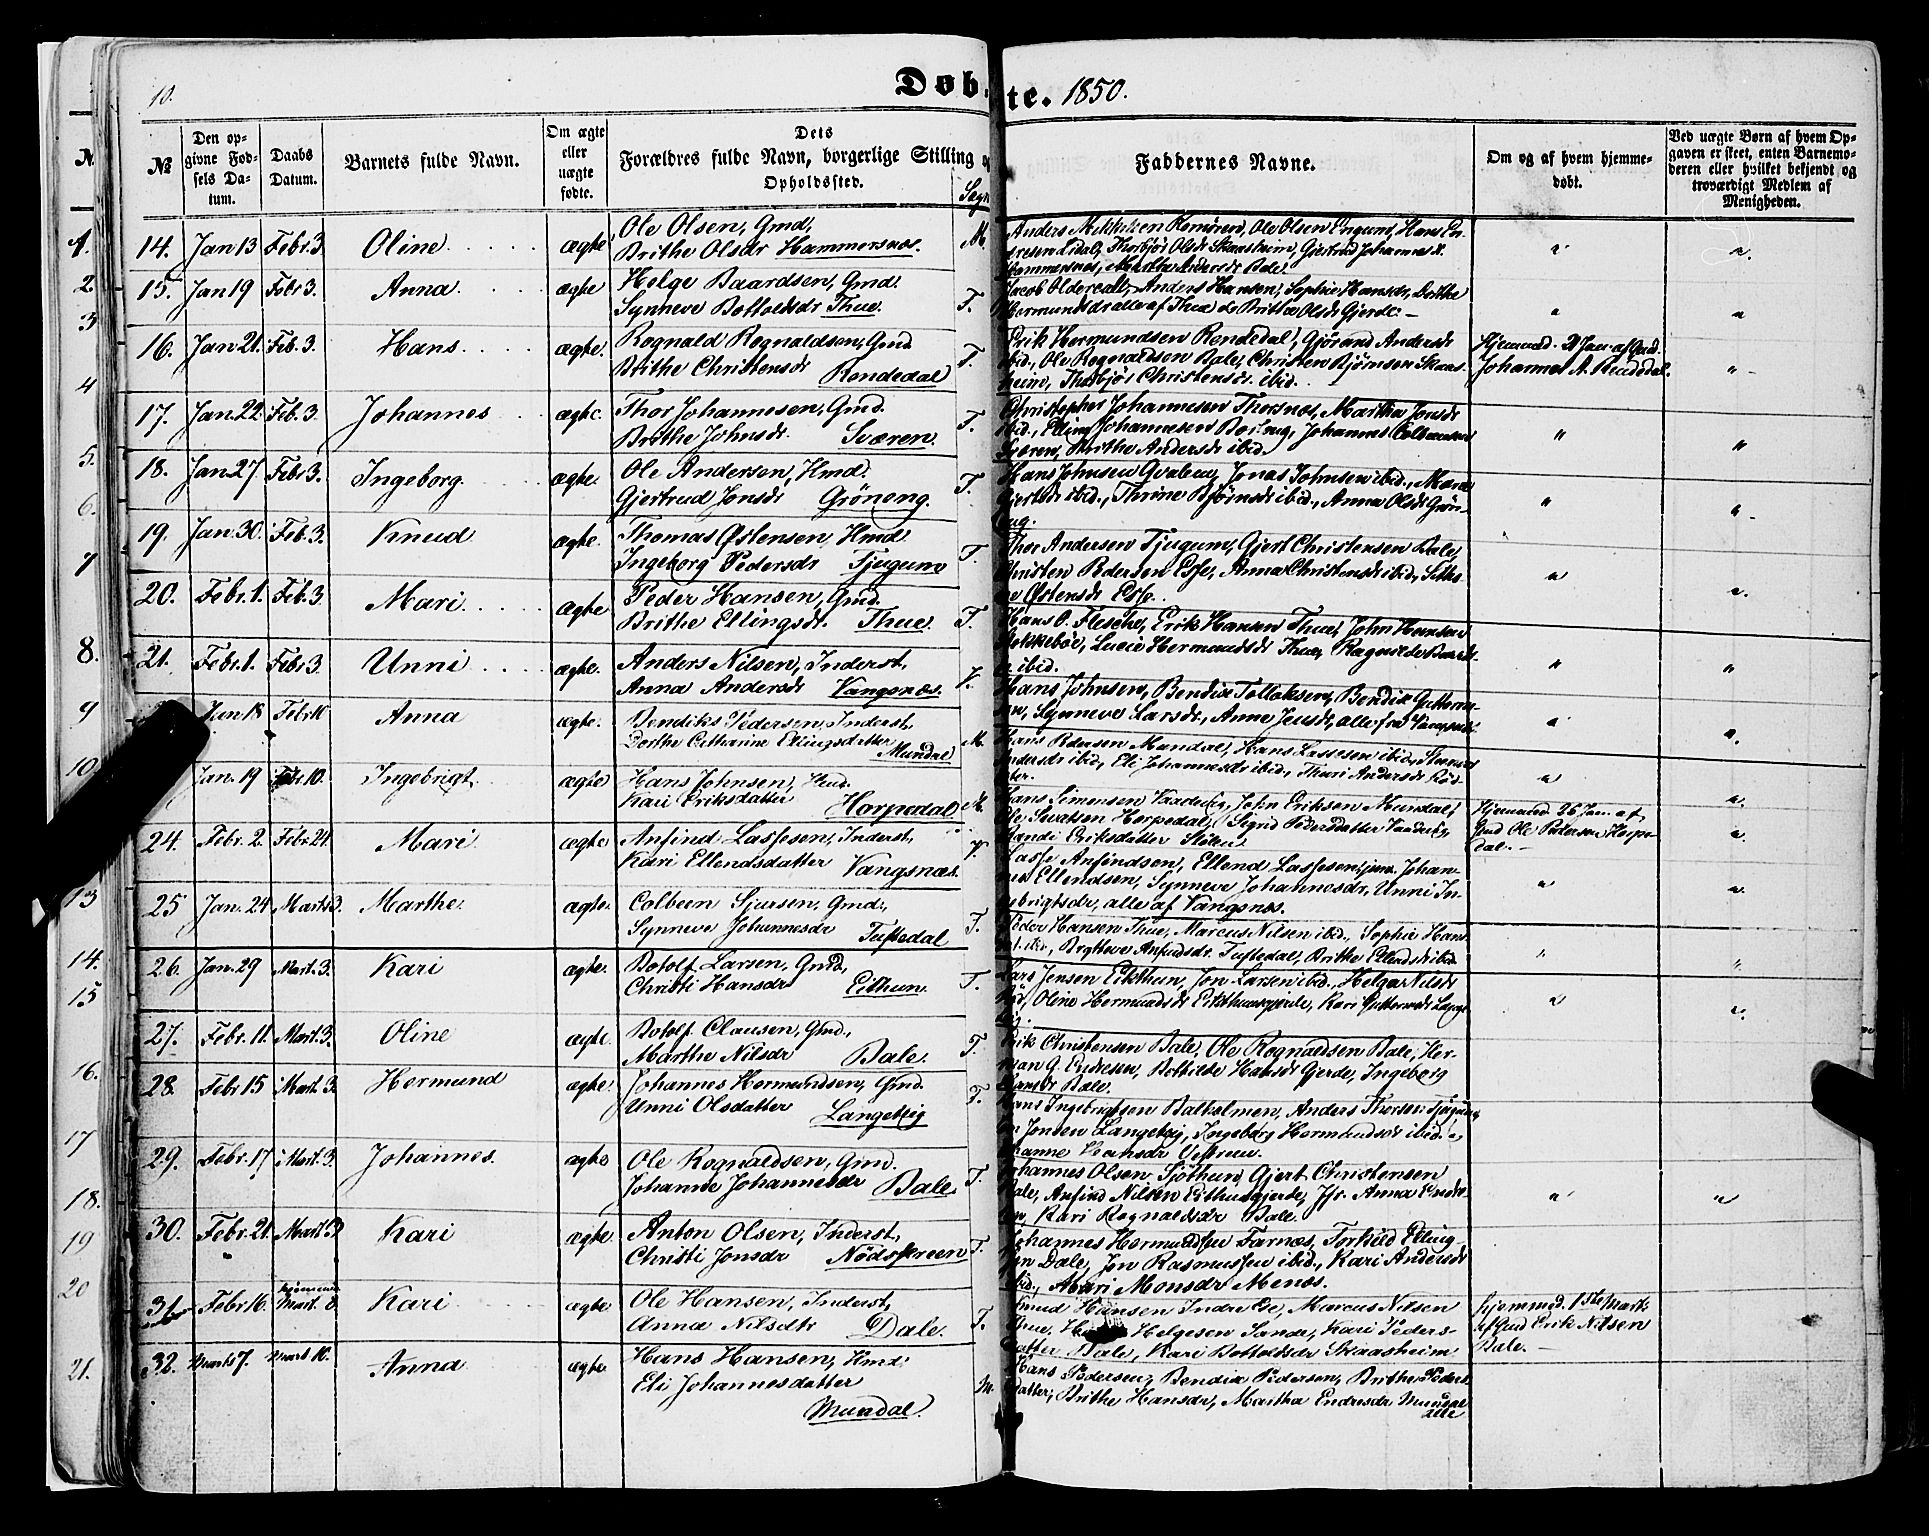 10.
Døbte. 1850.
№
Den opgivne Fødsels Datum.
Daabs Datum.
Barnets fulde Navn.
Om ægte eller uægte fødte.
Dets Forældres fulde Navn, borgerlige Stilling og Opholdssted.
Sogn
Faddernes Navne.
Om og af hvem hjemmedøbt.
Ved uægte Børn af hvem Opgaven er skeet, enten Barnemoderen eller hvilket bekjendt og troværdigt Medlem af Menigheden.
14. Jan 13 Febr. 3. Oline ægte Ole Olsen, Gmd, M.
Brithe Olsdr Hammersnæs.
15. Jan 19 Febr 3. Anna ægte Helge Baardsen, Gmd. T.
Synneve Bottolvsdr Thue.
Jacob Olderdall, Anders Hansen, Sophie Hansdr, Brithe
Hermundsdr alle af Thue & Brithe Olsdr Gjerde.
16. Jan 21. Feb. 3. Hans ægte. Rognald Rognaldsen, Gmd T.
Brithe Christensdr Rendedal
Erik Hermundsen Rendedal, Gjörand Andersdr
ibid., Ole Rognaldsen Bale, Christen Bjørnsen Skaas-
heim, Thorbjør Christensdr. ibid.
Hjemmed. 21 Jan. af Gmd.
Johannes A. Rendedal.
17. Jan 22. Feb. 3. Johannes ægte Thor Johannesen, Gmd. T.
Brithe Johnsdr. Sværen.
Christopher Johannesen Thorsnæs, Martha Jonsdr
ibid., Elling Johannesen
Sværen, Brithe Andersdr ibid.
18. Jan 27 Febr 3. Ingeborg ægte. Ole Andersen, Hmd T.
Gjertrud Jonsdr Gröneng.
Hans Johnsen Qvalem, Jonas Johnsen ibid.,
Gjertsdr ibid., Thrine Bjørnsdr ibid., Anna Olsdr Grön-
eng.
19. Jan 30. Feb. 3. Knud ægte. Thomas Østensen, Hmd T.
Ingeborg Pedersdr Tjugum
Thor Andersen Tjugum, Gjert Christensen Bale,
Christen Pedersen Esse, Anna Christensdr ibid,
Østensdr Esse.
20. Febr. 1. Feb. 3. Mari ægte Peder Hansen, Gmd. T.
Brithe Ellingsdr. Thue.
Hans O. Flesche, Erik Hansen Thue, John Hansen
Lucie Hermundsdr Thue,
ibid.
21. Febr. 1. Febr 3 Unni ægte. Anders Nilsen, Inderst, V.
Anna Andersdr Vangsnæs.
Hans Johnsen, Bendix Tolloksen, Bendix
Synneve Larsdr, Anne Jensdr, alle fra Vangsnæs
Jan 18 Febr 10 Anna ægte. Bendiks Pedersen, Inderst, M.
Dorthe Cathrine Ellingsdatter Mundal
Hans Pedersen Mundal, Hans Lassesen ibid,
Andersdr ibid, Eli Johannesdr ibid, Thuri Andersdr
Jan. 19 Febr 10. Ingebrigt ægte Hans Johnsen, Hmd. M.
Kari Eriksdatter Horpedal
Hans Simonsen John Eriksen Mundal,
Ole Horpedal, Sigrid Pedersdatter
Randi Eriksdatter
Hjemmed. 26 Jan. af
Gmd Ole Pedersen Horpe-
dal.
24. Febr. 2. Febr. 24 Mari ægte Anfind Lassesen, Inderst, V.
Kari Ellendsdatter Vangsnæs.
Lasse Anfindsen, Ellend Lassesen, Johan-
nes Ellendsen, Synneve Johannesdr, Unni In-
gebrigtsdr, alle af Vangsnæs.
25 Jan. 24 Marts 3. Marthe ægte. Colbeen Sjursen, Gmd., T.
Synneve Johannesdr Tuftedal
Peder Hansen Thue, Marcus Nilsen ibid., Sophie Hans-
dr. ibid., Anfindsdr. Tuftedal, Brithe Ellendsdr ibid.
26. Jan. 29 Mart. 3. Kari ægte. Botolf Larsen, Gmd, T.
Christi Hansdr Eithun
Lars Jensen Eithun, Jon Larsen ibid., Helga Nilsdr
Oline Hermundsdr Kari
27. Febr. 11. Mart. 3. Oline ægte Botolf Clausen, Gmd., T.
Marthe Nilsdr Bale.
Erik Christensen Bale, Ole Rognaldsen Bale, Her-
man G. Endresen, Bothilde Hansdr Gjerde, Ingeborg
Hansdr Bale.
28. Febr 15 Mart. 3. Hermund ægte. Johannes Hermundsen, Gmd. T.
Unni Olsdatter Langeteig
Hans Ingebrigtsen Balholmen, Anders Thorsen Tjugum,
Jonsen Langeteig, Ingeborg Hermundsdr ibid.
Johanne Hansdr
29. Febr. 17 Mart. 3. Johannes. ægte Ole Rognaldsen, Gmd. T.
Johanne Johannesdr Bale
Johannes Olsen Sjöthun, Gjert Christensen
Bale, Anfind Nilsen Eithusgjerde, Jfr. Anna
Kari Rognaldsdr Bale.
30. Febr. 21. Mart 3 Kari ægte. Anton Olsen, Inderst, T.
Christi Jonsdr Nödstreen
Johannes Hermundsen Farnæs, Torkild Elling-
sen Dale, Jon Rasmussen ibid., Kari Andersdr
ibid., Mari Monsdr Menæs.
31. Febr. 16. Mart. 8. Kari ægte Ole Hansen, Inderst, T.
Anna Nilsdtr Dale.
Knud Hansen Indre Ese, Marcus Nilsen
Thue, Helgesen Sande, Kari Peders-
datter Bale, Kari Bottolvsdr Skaasheim
hjemmed. 1ste Marts
af Gmd Erik Nilsen
Bale.
32. Marts 7. Marts 10. Anna ægte Hans Hansen, Hmd M.
Eli Johannesdatter
Mundal.
Hans Pedersen, Bendix Pedersen, Brithe Peders-
datter, Brithe Hansdr, Martha Endresdr Mundal
alle
1.
2.
3
4
5.
6.
7
8.
9
10
13
14.
15
16.
17
18.
19
20
21.